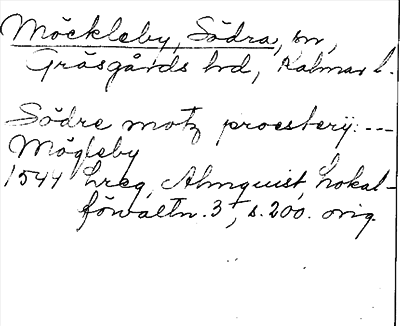 Möckleby, Södra, sn,
Gräsgårds hd, Kalmar l.
Södre motz proesterÿ: ---
Mögleby
1544 Lreg, Almquist, Lokal-
förvaltn. 3, s. 200. orig.